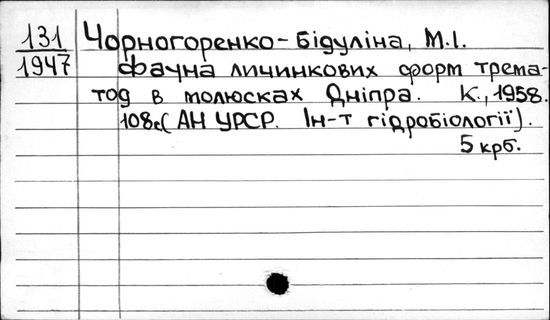 131
1947
Чорногоренко-Бідуліна, М.І.
Фауна личинкових форм трема-
тод в молюсках Дніпра. К., 1958.
108с. (АН УРСР. Ін-т гідробіології).
5 крб.